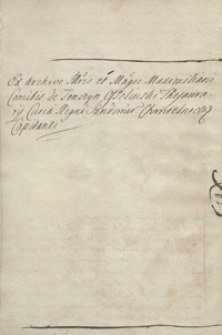 Ex Archivo Illris et Magci Maximiliani
Comitis de Tenczyn Ossolinski Thesaura-
rij Curiæ Regni Sandomir
Capitanei